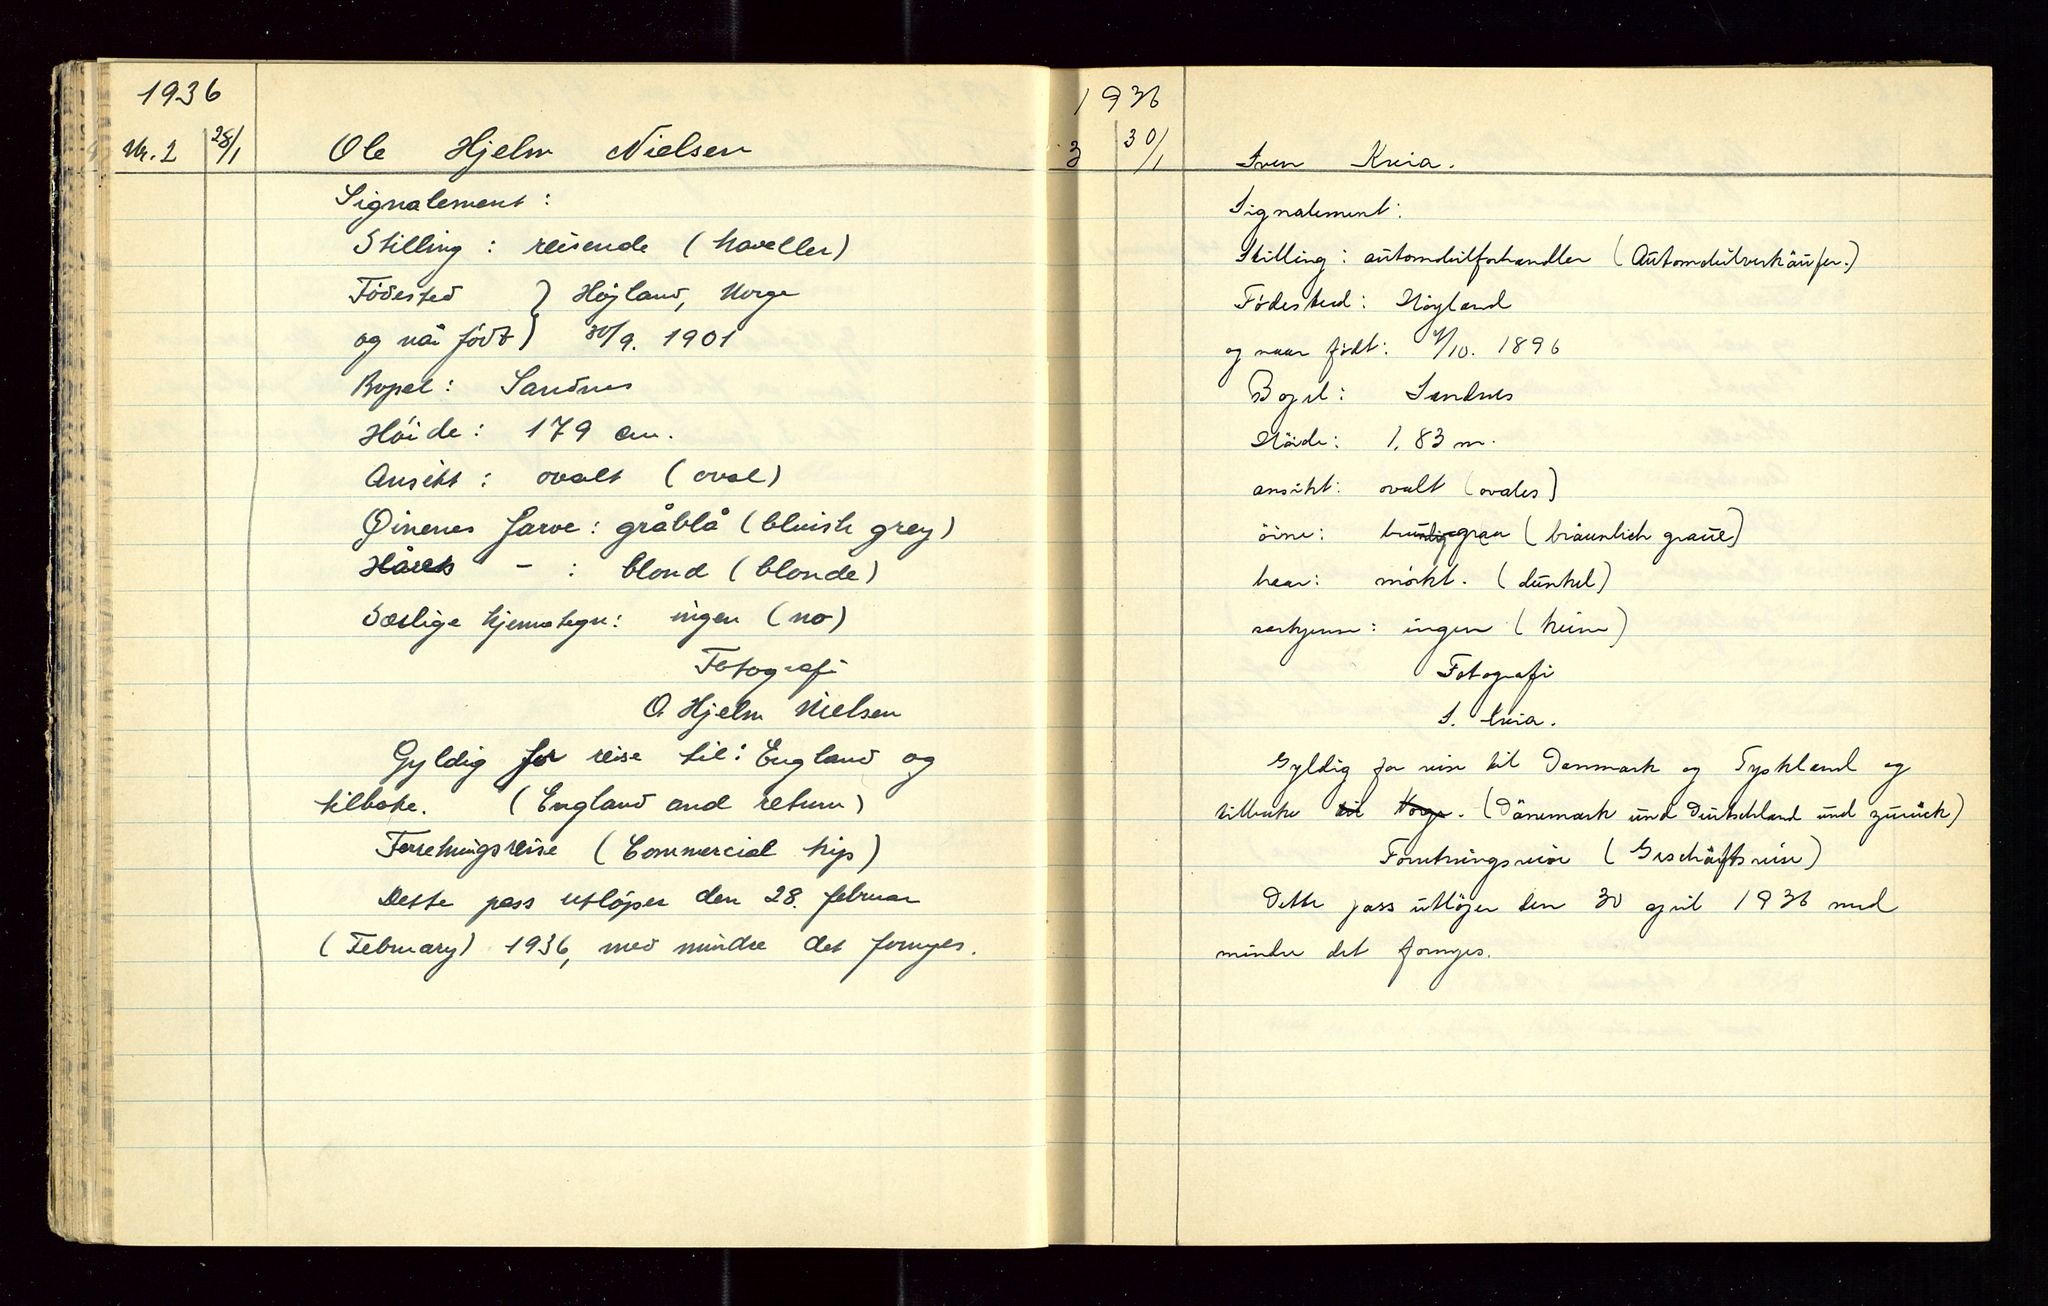 1936
Nr. 2 28/1 Ole Hjelm Nielsen
Signalement:
Stilling: reisende (traveller)
Fødested } Højland, Norge
og når født) 30/9. 1901
Bopel: Sandnes
Höide: 179 cm.
Ansikt: ovalt (oval)
Øinenes farve: gråblå (bluish grey)
Hårets - : blond (blonde)
Særlige kjennetegn: ingen (no)
Fotografi
O. Hjelm Nielsen
Gyldig for reise til: England og
tilbake. (England and return)
Forretningsreise (Commercial trip)
Dette pass utløper den 28. februar
(February) 1936, med mindre det fornyes.
1936
3 30/1 Sven Kvia.
Signalement:
Stilling: automobilforhandler (Automobilverkäufer.)
Fødested: Høyland
og naar født: /10. 1896
Bopel: Sandnes
Höide: 1,83 m.
ansikt: ovalt (ovales)
öine: brunliggraa (bräunlich graue)
haar: mörkt. (dunkel)
særkjenne: ingen (keine)
Fotografi
S. Kvia.
Gyldig for reise til Danmark og Tyskland og
tilbake til Norge. (Dänemark und Deutschland und zurück)
Forretningsreise (Geschäftsreise)
Dette pass utløper den 30 april 1936 med
mindre det fornyes.